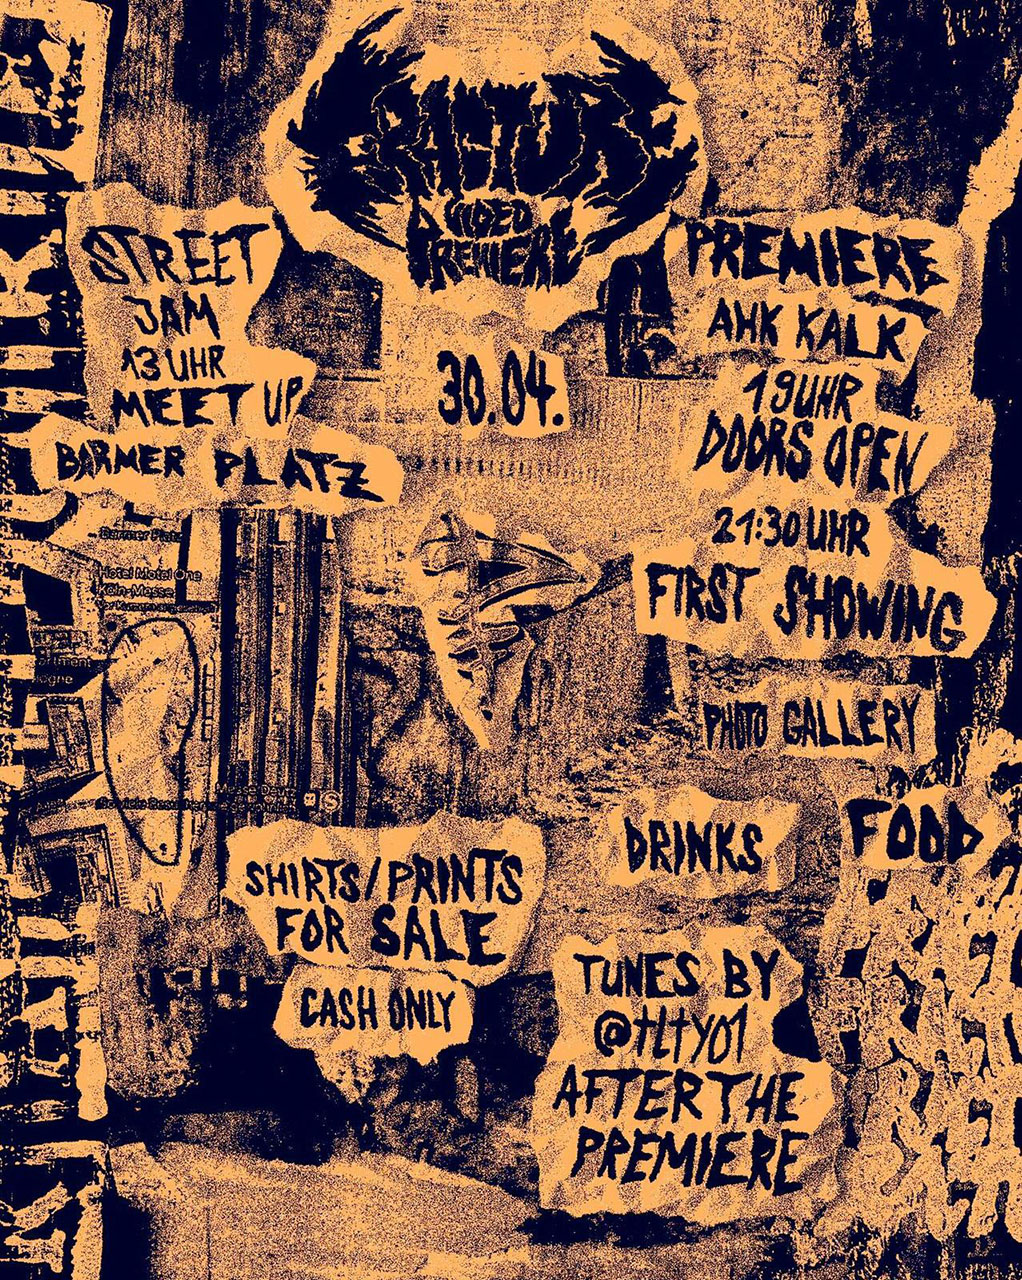 FRACTURE
VIDEO
PREMIERE
30.04.
STREET
JAM
13 UHR
MEET UP
BARMER PLATZ
PREMIERE
AHK KALK
19 UHR
DOORS OPEN
21:30 UHR
FIRST SHOWING
PHOTO GALLERY
Barmer Platz
Hotel Motel One
Köln-Messe
SHIRTS/PRINTS
FOR SALE
CASH ONLY
DRINKS
FOOD
TUNES BY
@tLtY01
AFTER THE
PREMIERE